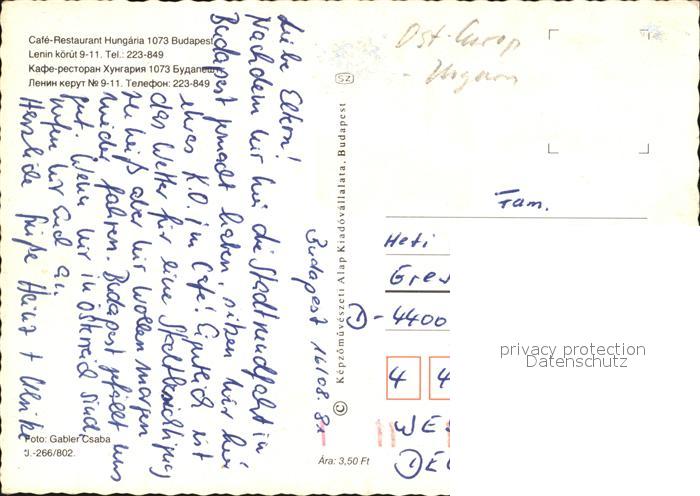 Café-Restaurant Hungária 1073 Budapest
Lenin körút 9-11. Tel.: 223-849
Кафе-ресторан Хунгария 1073 Будапешт
Ленин керут № 9-11. Телефон: 223-849
Budapest 16/08.
Liebe Eltern!
Nachdem wir hier die Stadtrundfahrt in
Budapest gemacht haben, sitzen wir hier
etwas K.O. im Café. Eigentlich ist
das Wetter für eine Stadtbesichtigung
zu heiß aber wir wollen morgen
wieder fahren. Budapest gefällt uns
gut. Wenn wir in Östreich sind,
rufen wir Euch an.
Herzliche Grüße Heinz + Ulrike
Foto: Gabler Csaba
J.-266/802.
SZ
© Képzőművészeti Alap Kiadóvállalata, Budapest
Ára: 3,50 Ft
Ost-Europ
- Ungarn
Fam.
Heti
Grev
D-4400
4 4
WES
DE
privacy protection
Datenschutz